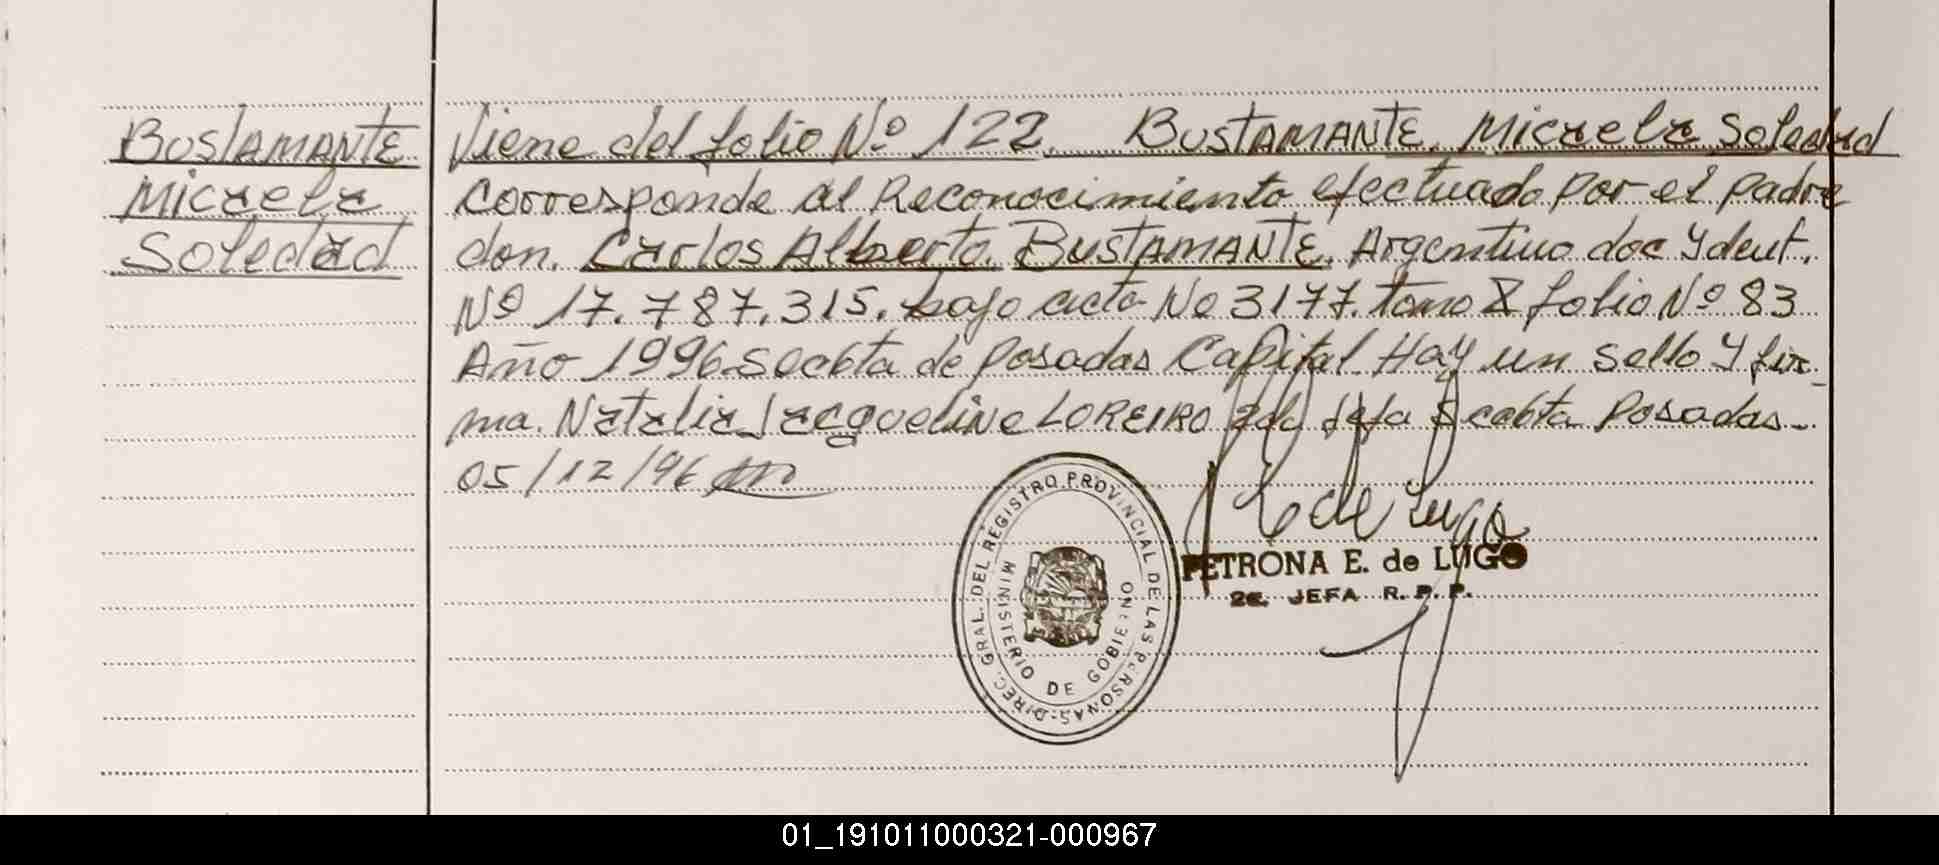 BUSTAMANTE
Micaela
Soledad
Viene del folio Nº 122. BUSTAMANTE. Micaela Soledad
corresponde al Reconocimiento efectuado por el padre
don. Carlos Alberto. BUSTAMANTE. Argentino doc Ydent.
Nº 17.787.315. bajo acta No 3177. tomo X folio Nº 83
Año 1996. Seccbta de Posadas Capital. Hay un sello y fir-
ma. Natalia Jacqueline LOREIRO 2da Jefa Seccbta Posadas.-
05/12/96
E de Lugo
PETRONA E. de LUGO
2a. JEFA R. P. P.
DIREC. GRAL. DEL REGISTRO PROVINCIAL DE LAS PERSONAS-
MINISTERIO DE GOBIERNO
01_191011000321-000967